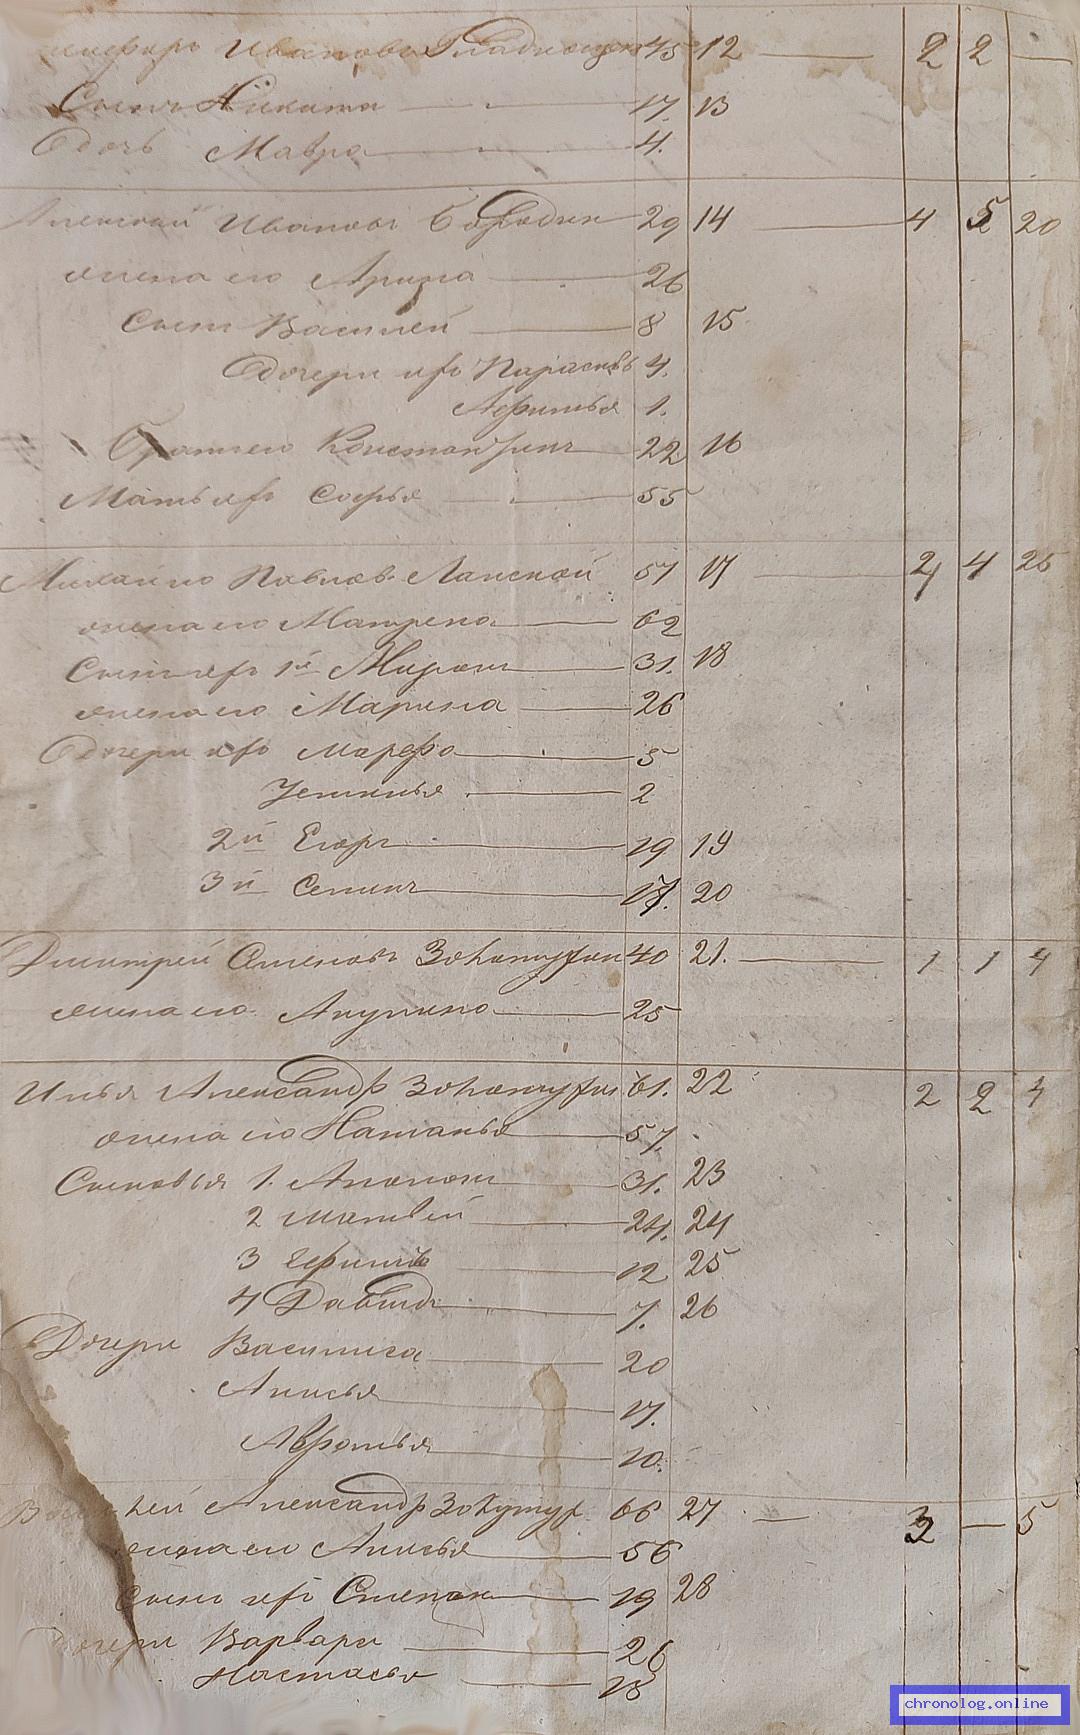 Иванова 45 12 — 2 2 —
Сынъ Никита — 17. 13
Дочь Мавра — 4.
Алексей Ивановъ Бородин 29 14 — 4 5 20
жена его Арина — 26
Сынъ Василей — 8 15
Дочери ихъ Парасковь 4.
Афимья 1.
Братъ его Константинъ 22 16
Мать ихъ Софья — 55
Михайло Павловъ Ланской 57 17 — 2 4 25
жена его Матрена — 62
Сынъ ихъ 1й Миронъ — 31. 18
жена его Марина — 26
Дочери ихъ Марфа — 5
Устинья — 2
2й Егоръ — 19 19
3й Семинъ — 17. 20
Дмитрей Семеновъ 40 21. — 1 1 4
жена его Акулина — 25
Илья Александр 61. 22 2 2 4
жена его Наталья — 57.
Сыновья 1. — 31. 23
2 Матвей — 24. 24
3 Ефимъ — 12 25
4 Давыдъ — 7. 26
Дочери Василиса — 20
Анисья — 17.
Афромья — 10.
Александр 66 27 — — 5
жена его Анисья — 56
Сынъ ихъ Степан — 19 28
Дочери Варвара — 26
Настасья — 18
chronolog.online